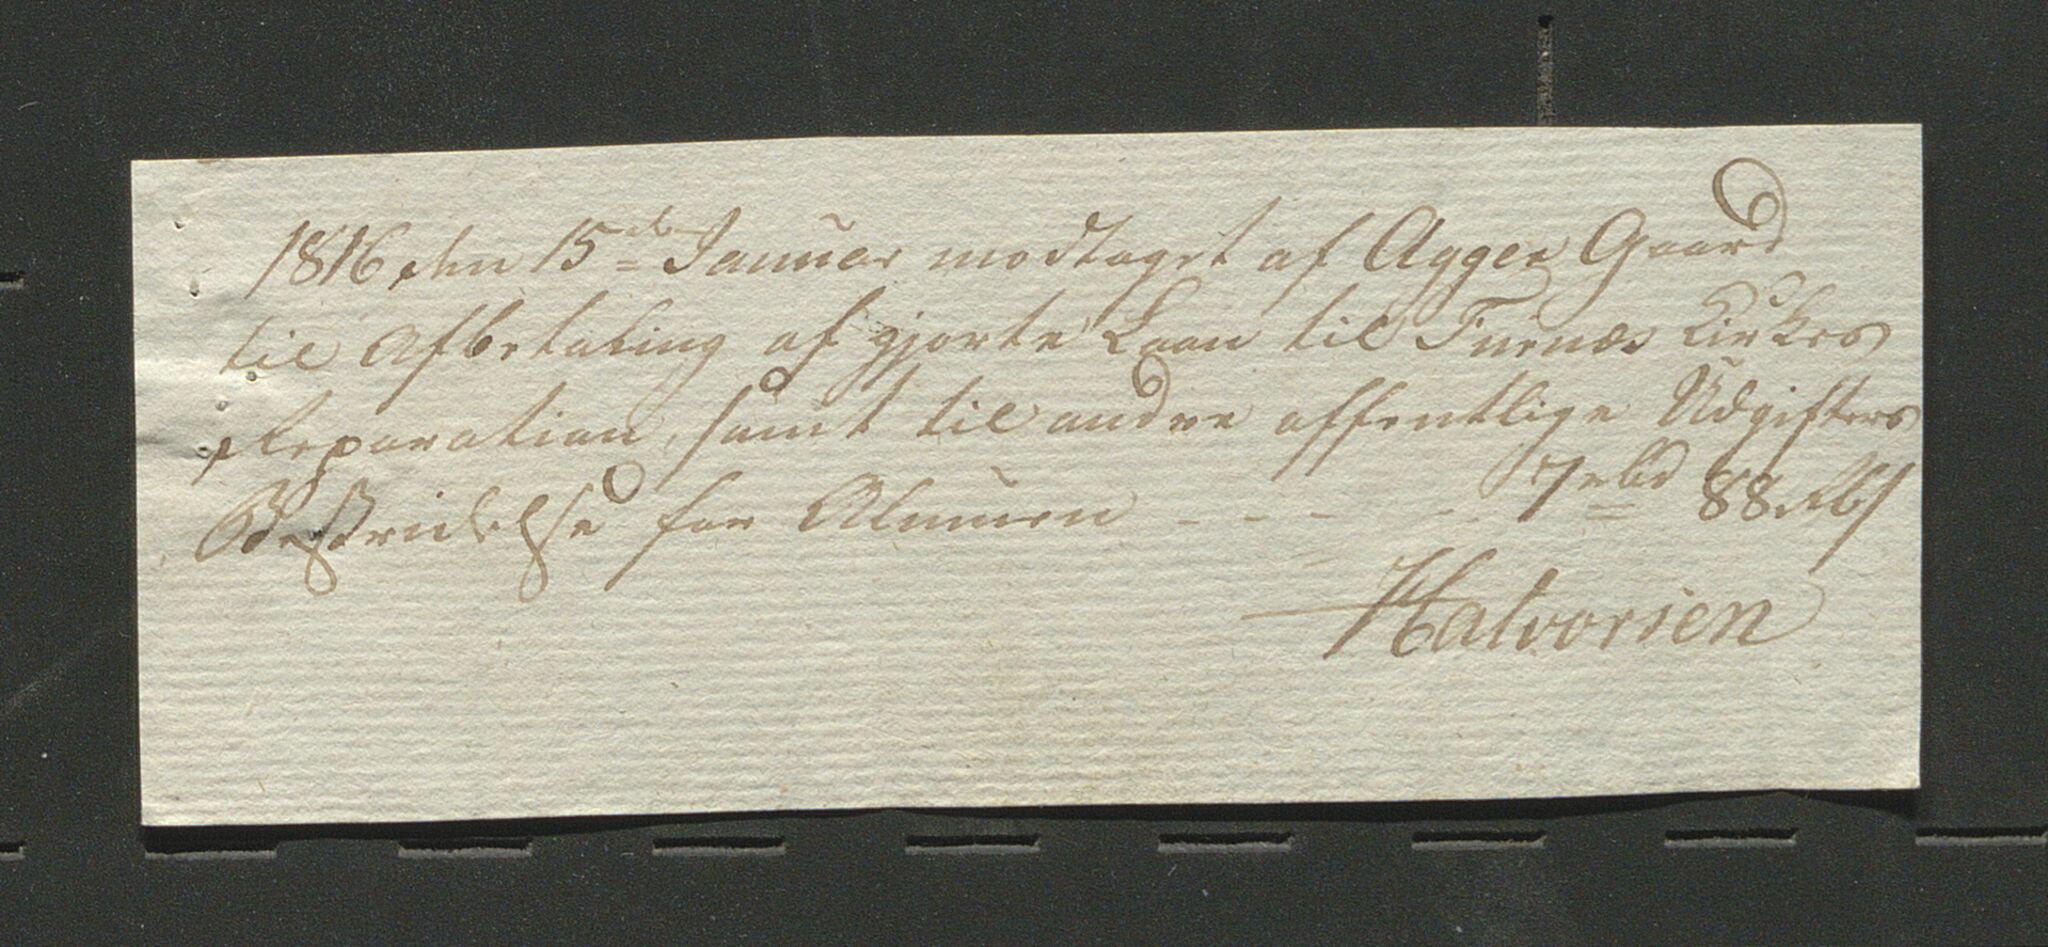 1816 den 15de Januar modtaget af Agger Gaard
til Afbetaling af gjorte Laan til Furnæs Kirkes
Reparation, samt til andre offentlige Udgifters
Bestridelse for Almuen - - - - 7 rbd 88 rbs
Halvorsen